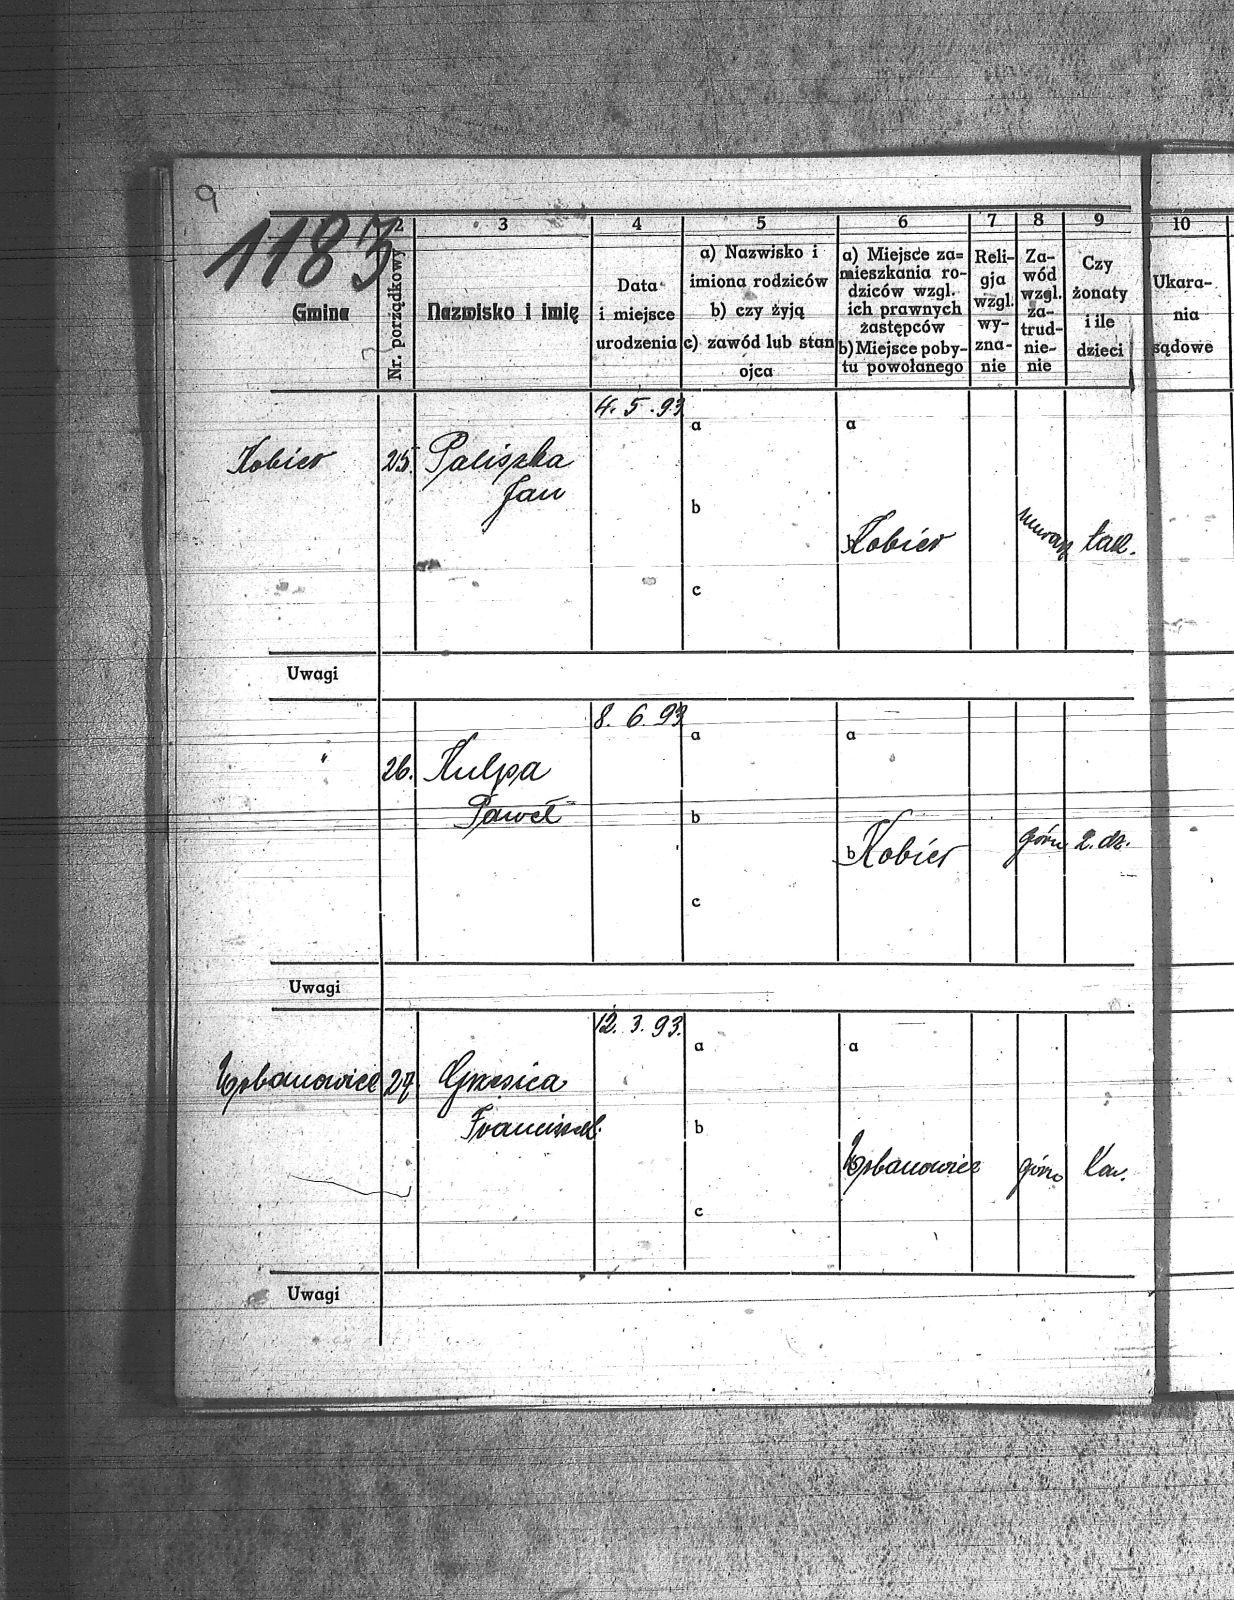 9
1183
2 3 4 5 6 7 8 9 10
Gmina
Nr. porządkowy
Nazwisko i imię
Data
i miejsce
urodzenia
a) Nazwisko i
imiona rodziców
b) czy żyją
c) zawód lub stan
ojca
a) Miejsce za=
mieszkania ro-
dziców wzgl.
ich prawnych
zastępców
b) Miejsce poby-
tu powołanego
Reli-
gja
wzgl.
wy-
zna-
nie
Za-
wód
wzgl.
za-
trud-
nie-
nie
Czy
żonaty
i ile
dzieci
Ukara-
nia
sądowe
4. 5. 93
a a
Kobier 25. Paliszka
Jan
b
b Kobier murarz tak.
c
Uwagi
8. 6. 93
a a
" 26. Kulpa
Paweł
b
b Kobier górn 2. dz.
c
Uwagi
12. 3. 93.
a a
Urbanowice 27. Grzesica
Franciszek.
b
b Urbanowice górn Kaw.
c
Uwagi